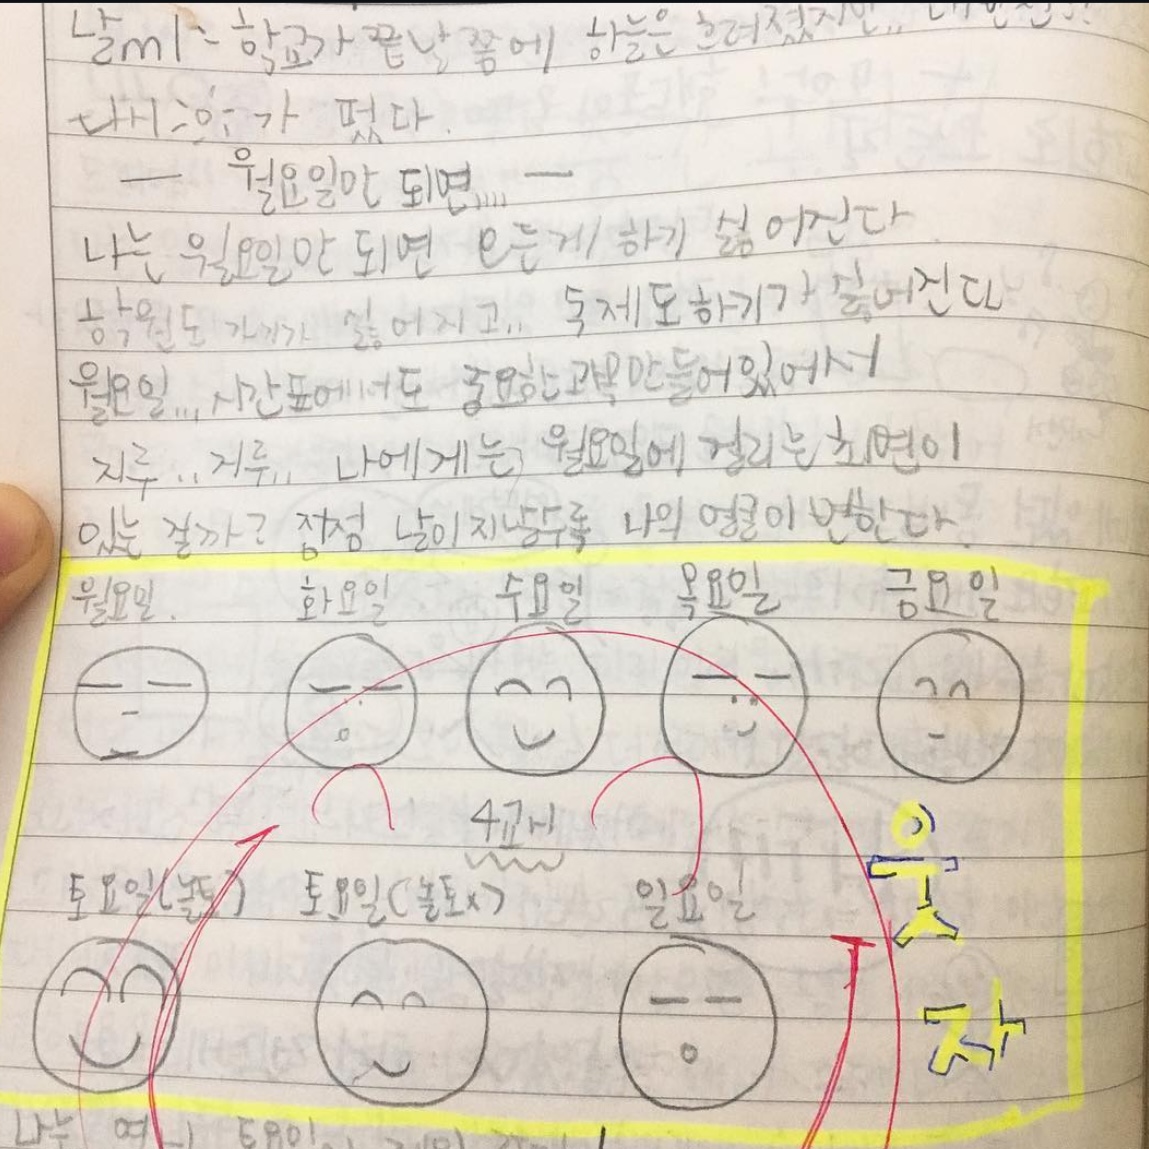 학교가 끝날 쯤에 하늘은 흐려졌지만,,
가 떴다.
— 월요일만 되면,,,, —
나는 월요일만 되면 모든게 하기 싫어진다
학원도 가기가 싫어지고,, 숙제도하기가 싫어진다
월요일,,, 시간표에서도 중요한 과목만들어있어서
지루,, 지루,, 나에게는, 월요일에 걸리는 최면이
있는 걸까? 점점 날이지날수록 나의 얼굴이 변한다.
월요일. 화요일. 수요일 목요일 금요일
4교시
토요일(놀토) 토요일(놀토x) 일요일
웃
자
나는 토요일